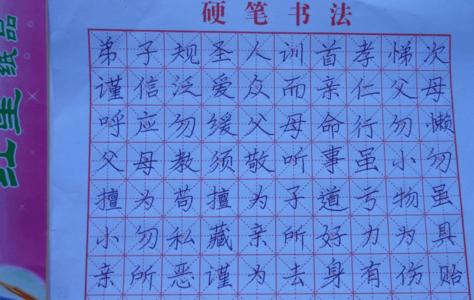 硬笔书法
弟子规圣人训首孝悌次
谨信泛爱众而亲仁父母
呼应勿缓父母命行勿懒
父母教须敬听事虽小勿
擅为苟擅为子道亏物虽
小勿私藏亲所好力为具
亲所恶谨为去身有伤贻
红星纸品